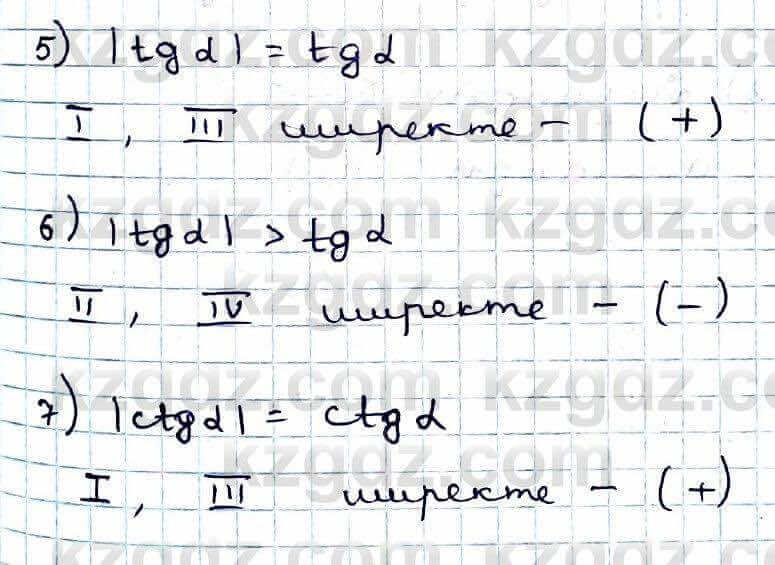 5) |tgα| = tgα
I, III ширекте - (+)
6) |tgα| > tgα
II, IV ширекте - (-)
7) |ctgα| = ctgα
I, III ширекте - (+)
kzgdz.com